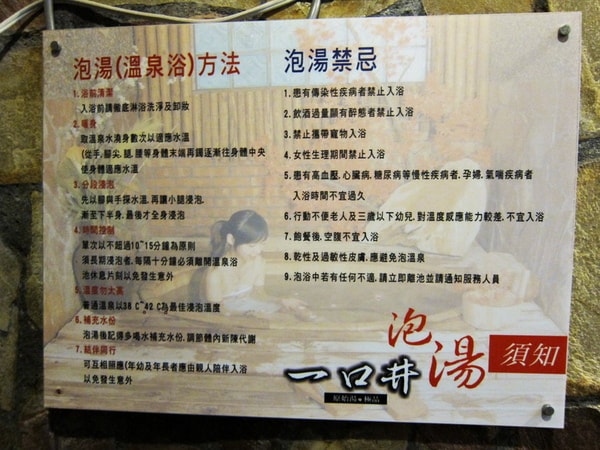 泡湯(溫泉浴)方法
1. 浴前清潔
入浴前請徹底淋浴洗淨及卸妝
2. 暖身
取溫泉水澆身數次以適應水溫
(從手,腳尖,腿,腰等身體末端再躅逐漸往身體中央
使身體適應水溫
3. 分段浸泡
先以腳與手探水溫,再讓小腿浸泡,
漸至下半身,最後才全身浸泡
4. 時間控制
單次以不超過10~15分鐘為原則
須長期浸泡者,每隔十分鐘必須離開溫泉浴
池休息片刻以免發生意外
5. 溫度勿太高
普通溫泉以38 C~42 C為最佳浸泡溫度
6. 補充水份
泡湯後記傳多喝水補充水份,調節體內新陳代謝
7. 結伴同行
可互相照應(年幼及年長者應由親人陪伴入浴
以免發生意外
泡湯禁忌
1. 患有傳染性疾病者禁止入浴
2. 飲酒過量顯有醉態者禁止入浴
3. 禁止攜帶寵物入浴
4. 女性生理期間禁止入浴
5. 患有高血壓,心臟病,糖尿病等慢性疾病者,孕婦,氣喘疾病者
入浴時間不宜過久
6. 行動不便老人及三歲以下幼兒,對溫度感應能力較差,不宜入浴
7. 飽餐後,空腹不宜入浴
8. 乾性及過敏性皮膚,應避免泡溫泉
9. 泡浴中若有任何不適,請立即離池並請通知服務人員
泡湯
須知
一口井
原始湯♥極品